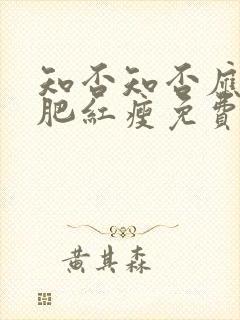 知否知否應
肥紅瘦免費
黃其森